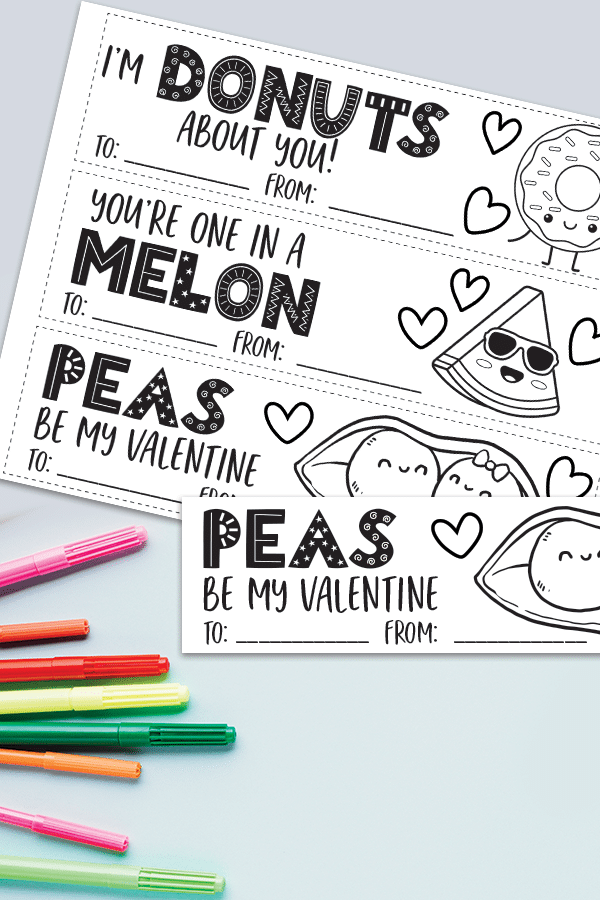 I'M DONUTS
ABOUT YOU!
TO: ____________ FROM: ____________
YOU'RE ONE IN A
MELON
TO: ____________ FROM: ____________
PEAS
BE MY VALENTINE
TO: ____________
PEAS
BE MY VALENTINE
TO: ____________ FROM: ____________